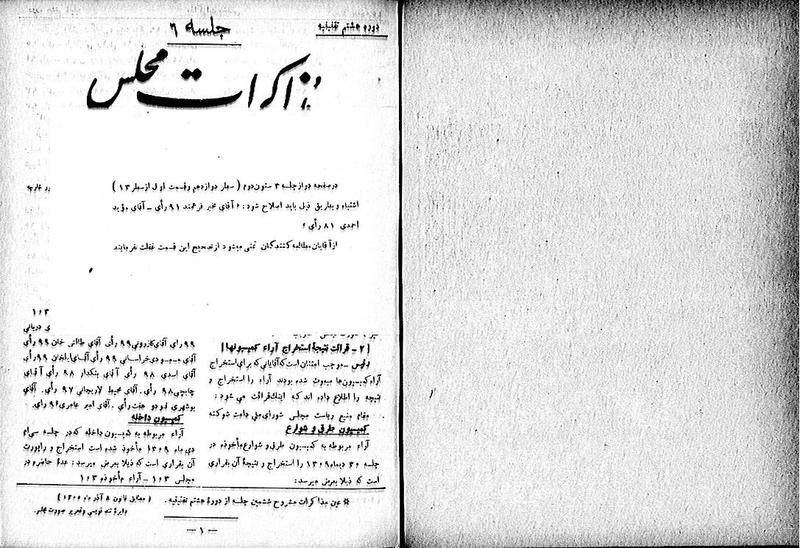 دوره هشتم تقنینیه
جلسه ۶
مذاکرات مجلس
در صفحه دو از جلسه ۳ ستون دوم ( سطر دوازدهم وقسمت اول از سطر ۱۳ )
اشتباه و بطریق ذیل باید اصلاح شود : آقای مخبر فرهمند ۹۱ رأی ــ آقای مؤید
احمدی ۸۱ رأی
از آقایان مطالعه کنندگان تمنی میشود از تصحیح این قسمت غفلت نفرمایند
[ ۲ ـ قرائت نتیجهٔ استخراج آراء کمیسیونها ]
رئیس ــ موجب امتنان است که آقایانی که برای استخراج
آراء کمیسیون‌ها مبعوث شده بودند آراء را استخراج و
نتیجه را اطلاع داده اند که اینک قرائت می شود :
مقام منیع ریاست مجلس شورای ملی دامت شوکته
کمیسیون طرق و شوارع
آراء مربوطه به کمیسیون طرق و شوارع مأخوذه در
جلسه ۳۰ دیماه ۱۳۰۹ را استخراج و نتیجهٔ آن بقراری
است که ذیلا بعرض میرسد :
۱۰۳
۹۹ رای آقای کازرونی ۹۹ رأی آقای طالش خان ۹۹ رأی
آقای مسعودی خراسانی ۹۹ رأی آقای ایلخان ۹۹ رأی
آقای اسدی ۹۸ رأی آقای بنکدار ۹۸ رأی آقای
چایچی ۹۸ رأی . آقای محیط لاریجانی ۹۷ رأی . آقای
بوشهری نود و هفت رأی . آقای امیر عامری ۹۶ رأی .
کمیسیون داخله
آراء مربوطه به کمیسیون داخله که در جلسه سی‌ام
دی ماه ۱۳۰۹ مأخوذ شده است استخراج و راپورت
آن بقراری است که ذیلا بعرض میرسد : عدهٔ حاضر در
مجلس ۱۰۳ ــ آراء مأخوذه ۱۰۳
* عین مذاکرات مشروح ششمین جلسه از دورهٔ هشتم تقنینیه . ( مطابق قانون ۸ آذر ماه ۱۳۰۶ )
دایرهٔ تند نویسی و تحریر صورت مجلس .
ــ ۱ ــ